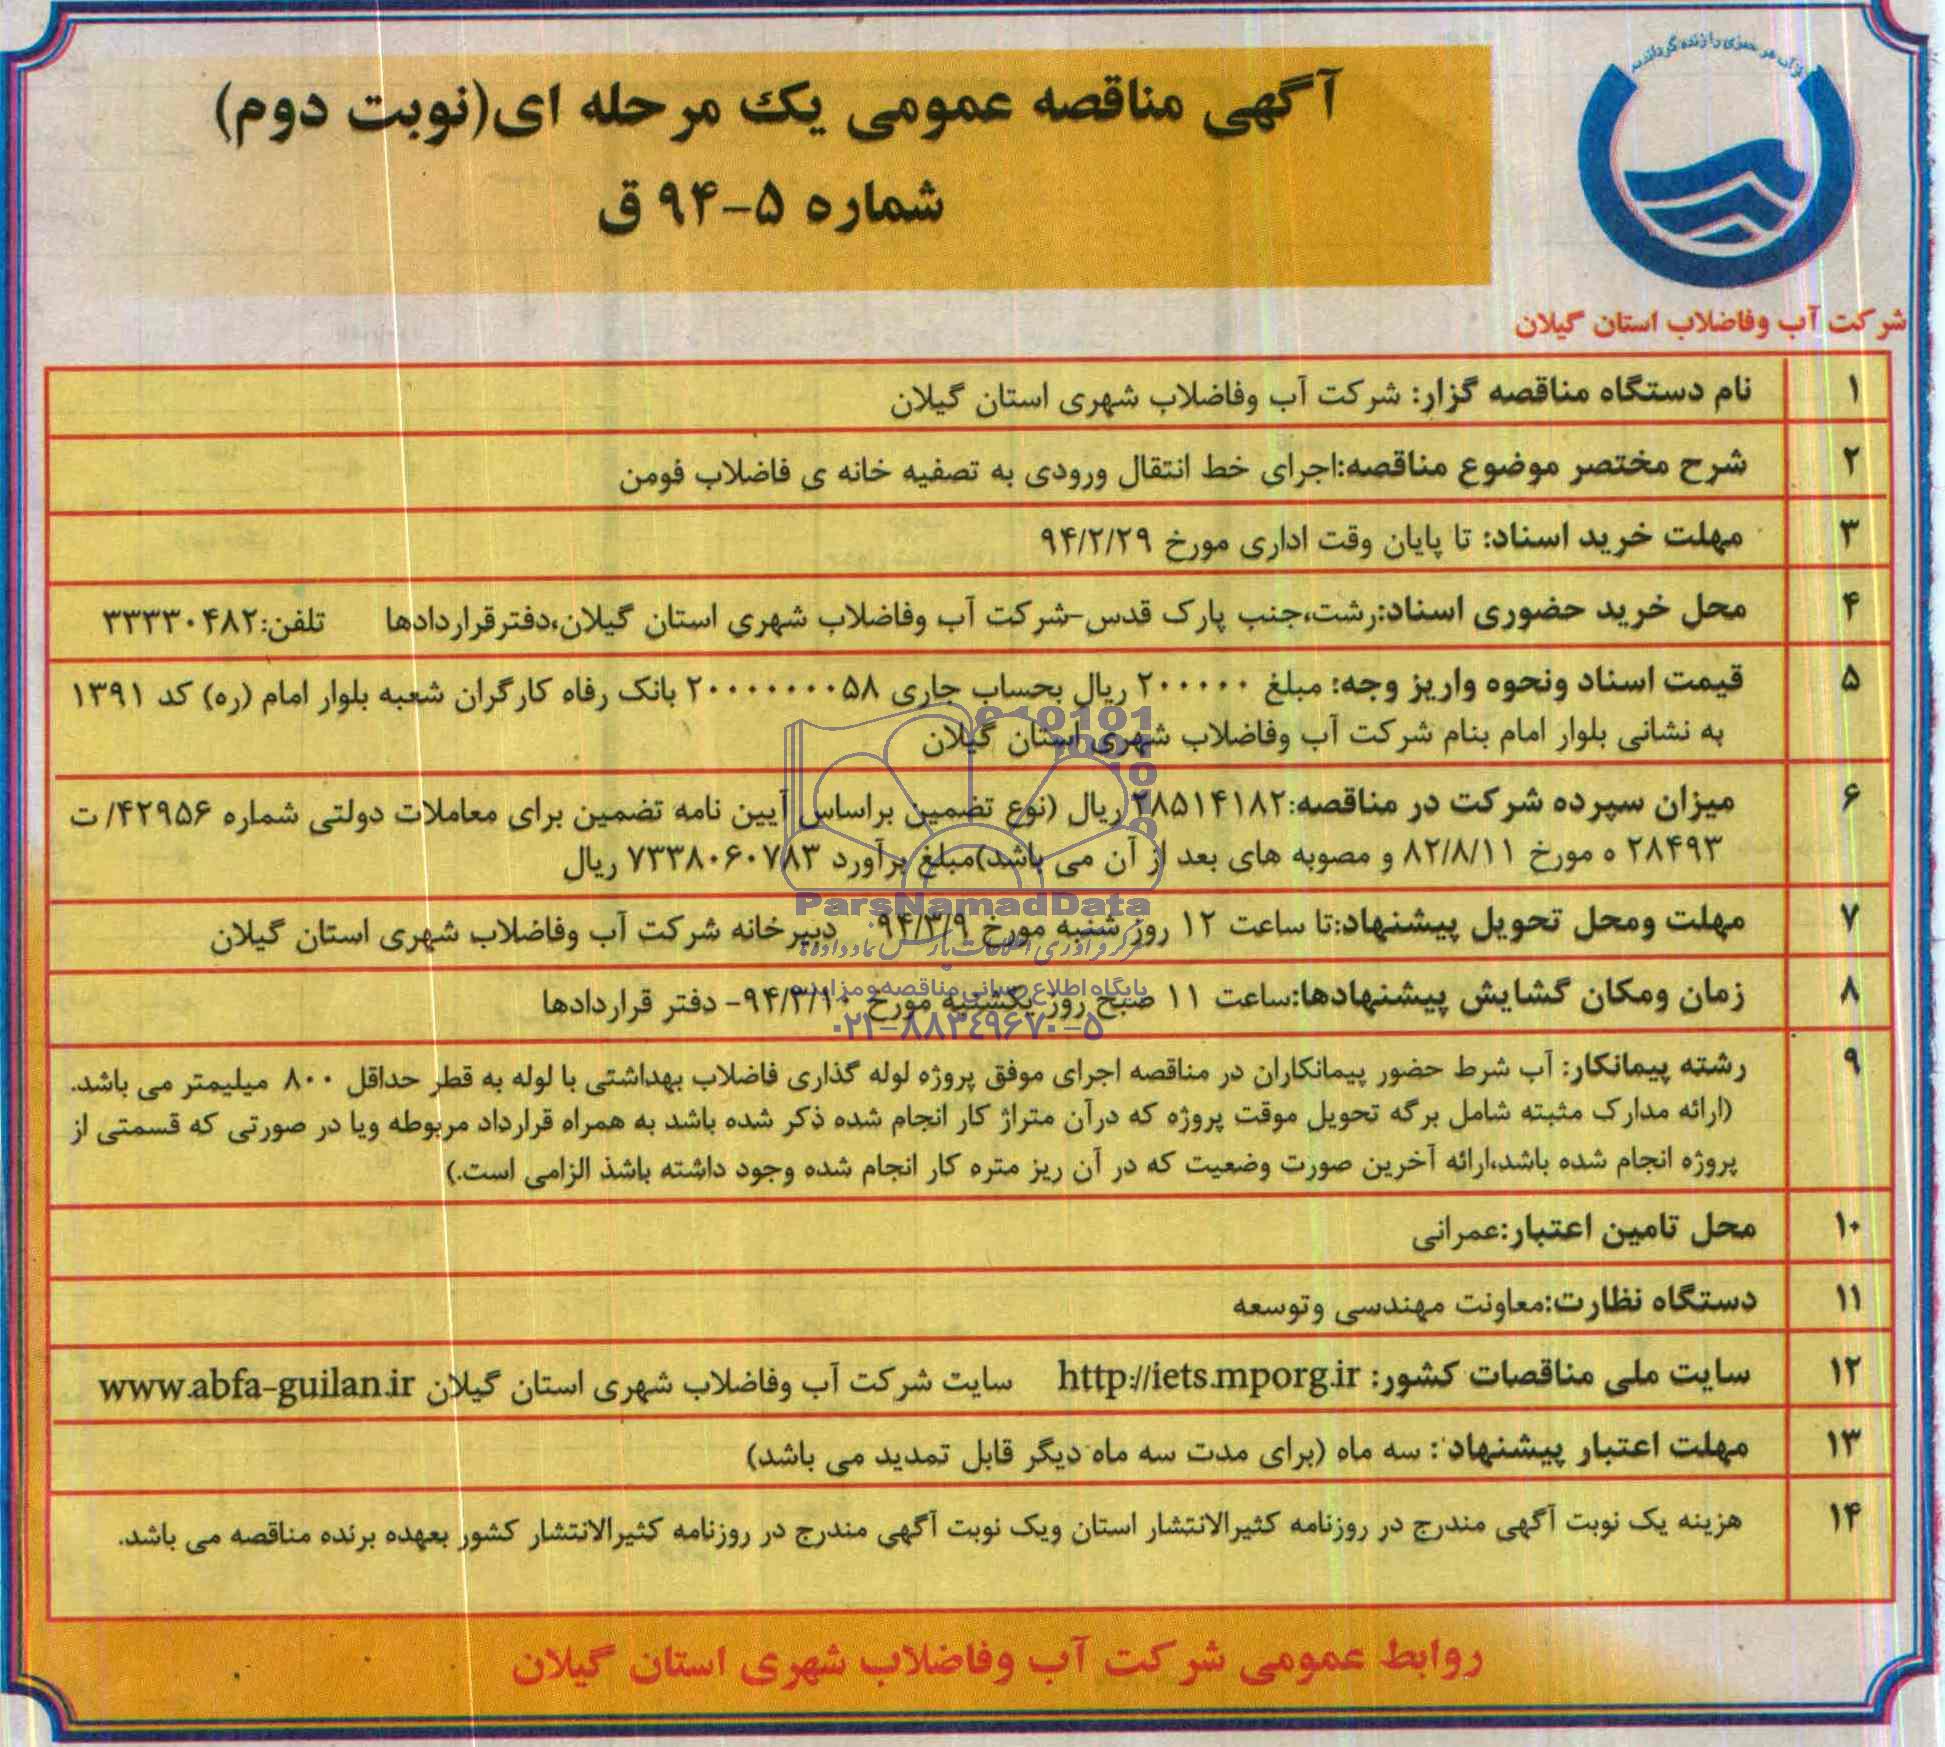 از آب هر چیزی را زنده گرداندیم
آگهی مناقصه عمومی یک مرحله ای(نوبت دوم)
شماره ۵-۹۴ ق
شرکت آب وفاضلاب استان گیلان
۱ نام دستگاه مناقصه گزار: شرکت آب وفاضلاب شهری استان گیلان
۲ شرح مختصر موضوع مناقصه:اجرای خط انتقال ورودی به تصفیه خانه ی فاضلاب فومن
۳ مهلت خرید اسناد: تا پایان وقت اداری مورخ ۹۴/۲/۲۹
۴ محل خرید حضوری اسناد:رشت،جنب پارک قدس-شرکت آب وفاضلاب شهری استان گیلان،دفترقراردادها تلفن:۳۳۳۳۰۴۸۲
۵ قیمت اسناد ونحوه واریز وجه: مبلغ ۲۰۰۰۰۰ ریال بحساب جاری ۲۰۰۰۰۰۰۰۵۸ بانک رفاه کارگران شعبه بلوار امام (ره) کد ۱۳۹۱
به نشانی بلوار امام بنام شرکت آب وفاضلاب شهری استان گیلان
۶ میزان سپرده شرکت در مناقصه:۲۸۵۱۴۱۸۲ ریال (نوع تضمین براساس آیین نامه تضمین برای معاملات دولتی شماره ۴۲۹۵۶/ ت
۲۸۴۹۳ ه مورخ ۸۲/۸/۱۱ و مصوبه های بعد از آن می باشد)مبلغ برآورد ۷۳۳۸۰۶۰۷۸۳ ریال
ParsNamadData
۷ مهلت ومحل تحویل پیشنهاد:تا ساعت ۱۲ روز شنبه مورخ ۹۴/۳/۹ دبیرخانه شرکت آب وفاضلاب شهری استان گیلان
پایگاه اطلاع رسانی مناقصه و مزایده
۸ زمان ومکان گشایش پیشنهادها:ساعت ۱۱ صبح روز یکشنبه مورخ ۹۴/۳/۱۰- دفتر قراردادها
۰۲۱-۸۸۳۴۹۶۷۰-۵
۹ رشته پیمانکار: آب شرط حضور پیمانکاران در مناقصه اجرای موفق پروژه لوله گذاری فاضلاب بهداشتی با لوله به قطر حداقل ۸۰۰ میلیمتر می باشد.
(ارائه مدارک مثبته شامل برگه تحویل موقت پروژه که درآن متراژ کار انجام شده ذکر شده باشد به همراه قرارداد مربوطه ویا در صورتی که قسمتی از
پروژه انجام شده باشد،ارائه آخرین صورت وضعیت که در آن ریز متره کار انجام شده وجود داشته باشذ الزامی است.)
۱۰ محل تامین اعتبار:عمرانی
۱۱ دستگاه نظارت:معاونت مهندسی وتوسعه
۱۲ سایت ملی مناقصات کشور: http://iets.mporg.ir سایت شرکت آب وفاضلاب شهری استان گیلان www.abfa-guilan.ir
۱۳ مهلت اعتبار پیشنهاد : سه ماه (برای مدت سه ماه دیگر قابل تمدید می باشد)
۱۴ هزینه یک نوبت آگهی مندرج در روزنامه کثیرالانتشار استان ویک نوبت آگهی مندرج در روزنامه کثیرالانتشار کشور بعهده برنده مناقصه می باشد.
روابط عمومی شرکت آب وفاضلاب شهری استان گیلان